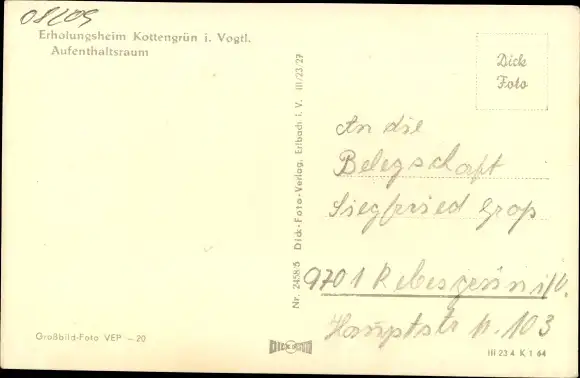 08209
Erholungsheim Kottengrün i. Vogtl.
Aufenthaltsraum
Dick
Foto
Nr. 2458/5 Dick-Foto-Verlag, Erlbach i. V. III/23/27
An die
Belegschaft
Siegfried Groß
9701 Rebesgrün i/V.
Hauptstr n. 103
Großbild-Foto VEP -.20
DICK FOTO
III 23 4 K 1 64